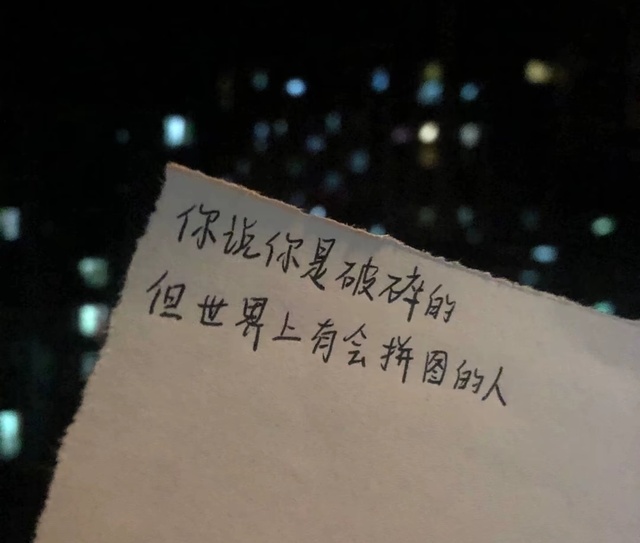 你说你是破碎的
但世界上有会拼图的人